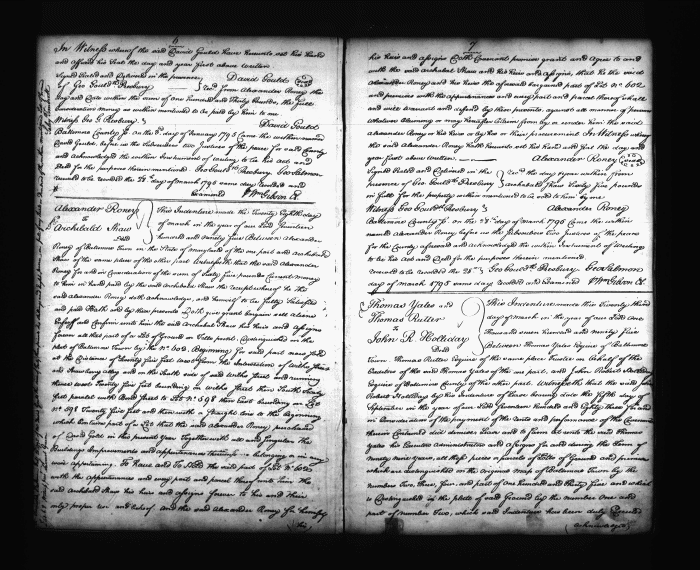 6
In Witness whereof the said David Gould have hereunto set his hand
and affixed his Seal the day and year first above written
Signed Sealed and Delivered in the presence David Gould
of Geo Gould Presbury Recd from Alexander Roney the
day and date within the sum of one hundred and thirty Pounds, the full
Consideration money as within mentioned to be paid by him to me
Witness Geo G. Presbury David Gould
Baltimore County ss. on the day of January 1795 Came the within named
David Gould, before us the Subscribers two Justices of the peace for said County
and acknowledged the within Instrument of writing to be his act and
Deed for the purposes therein mentioned Geo Gould Presbury. Geo Salmon
received to be recorded the day of March 1795 same day recorded and
Examined Wm Gibson Ck
Alexander Roney
to
Archibald Shaw
Deed
This Indenture made the Twenty Eighth day
of March in the year of our Lord Seventeen
hundred and ninety five Between Alexander
Roney of Baltimore Town in the State of Maryland of the one part and Archibald
Shaw of the same place of the other part Witnesseth that the said Alexander
Roney for and in Consideration of the sum of Sixty five Pounds Current money
to him in hand paid by the said Archibald Shaw the receipt whereof he the
said Alexander Roney doth acknowledge, and himself to be fully Satisfied
and paid Hath and by these presents Doth give grant bargain sell aliene
Enfeoff and Confirm unto him the said Archibald Shaw his heirs and assigns
forever all that part of a Lot of Ground
plot of Baltimore Town by No 602. Beginning for said part
at the distance of Twenty five feet
and running
these
feet parallel with Bond Street to Lot No 598 then East bounding on Lot
No 598 Twenty five feet and then with a straight line to the Beginning
which Contains part of a Lot that the said Alexander Roney purchased
of David Gould in the present Year Together with all and singular the
Buildings Improvements and appurtenances belonging or in any
wise appertaining. To have and To Hold the said part of Lot No 602
with the appurtenances and every part and parcel thereof unto him the
said Archibald Shaw his heirs and assigns forever to his and their
only proper use and behoof. and the said Alexander Roney for himself
his
7
his heirs and assigns Doth Covenant promise grant and agree to and
with the said Archibald Shaw and his heirs and assigns, that he the said
Alexander Roney and his heirs the aforesaid bargained part of Lot No 602
and premises with the appurtenances and every part and parcel thereof shall
and will warrant and defend by these presents, against all manner of persons
whatever Claiming or may hereafter Claim from by or under him the said
Alexander Roney or his heirs or by his or their procurement In Witness whereof
the said Alexander Roney Hath hereunto set his Hand and Seal the day and
year first above written. Alexander Roney
Signed Sealed and Delivered in the
presence of Geo Gould Presbury
Recd the day & year within from
Archibald Shaw Sixty five pounds
in full for the property within mentioned to be paid to him by me
Witness Geo Gould Presbury Alexander Roney
Baltimore County ss. on the 28th day of March 1795 Came the within
named Alexander Roney before us the Subscribers two Justices of the peace
for the County aforesaid and acknowledged the within Instrument of Writing
to be his Act and Deed for the purposes therein mentioned.
received to be recorded the 28th Geo Gould Presbury. Geo Salmon
day of March 1795 same day recorded and Examined Wm Gibson Ck
Thomas Yates and
Thomas Rutter
to
John R. Holliday
Deed
This Indenture made this Twenty third
day of March in the year of our Lord one
Thousand seven hundred and ninety five
Between Thomas Yates Esquire of Baltimore
Town Thomas Rutter Esquire of the same place Trustee in behalf of the
Creditors of the said Thomas Yates of the one part, and John Robert Holliday
Esquire of Baltimore County of the other part. Witnesseth that the said John
Robert Holliday by his Indenture of Lease bearing date the fifth day of
September in the year of our Lord Seventeen Hundred and Eighty three for and
in Consideration of the payment of the rents and performance of the Covenants
therein Contained did demise Lease and to farm let unto the said Thomas
Yates his Executors Administrators and assigns for and during the Term of
Ninety nine years, all those pieces or parcels of Lotts of Ground and premises
which are distinguished on the original map of Baltimore Town by the
number Two, Three, four, and part of one Hundred and Thirty five and which
is Contradistinguished in the plots of said Ground by the number One and
part of number Two, which said Indenture has been duly Executed
(acknowledged)